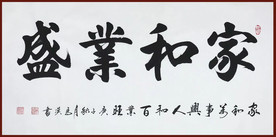 家和業盛
家和万事興人和百業旺庚子秋月書